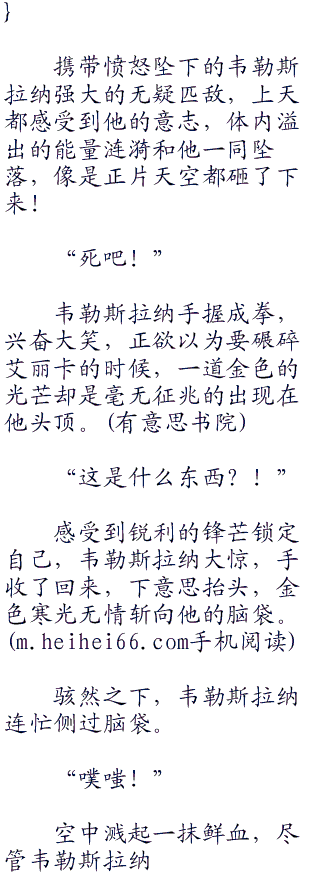 }
携带愤怒坠下的韦勒斯
拉纳强大的无疑匹敌，上天
都感受到他的意志，体内溢
出的能量涟漪和他一同坠
落，像是正片天空都砸了下
来！
“死吧！”
韦勒斯拉纳手握成拳，
兴奋大笑，正欲以为要碾碎
艾丽卡的时候，一道金色的
光芒却是毫无征兆的出现在
他头顶。(有意思书院)
“这是什么东西？！”
感受到锐利的锋芒锁定
自己，韦勒斯拉纳大惊，手
收了回来，下意思抬头，金
色寒光无情斩向他的脑袋。
(m.heihei66.com手机阅读)
骇然之下，韦勒斯拉纳
连忙侧过脑袋。
“噗嗤！”
空中溅起一抹鲜血，尽
管韦勒斯拉纳